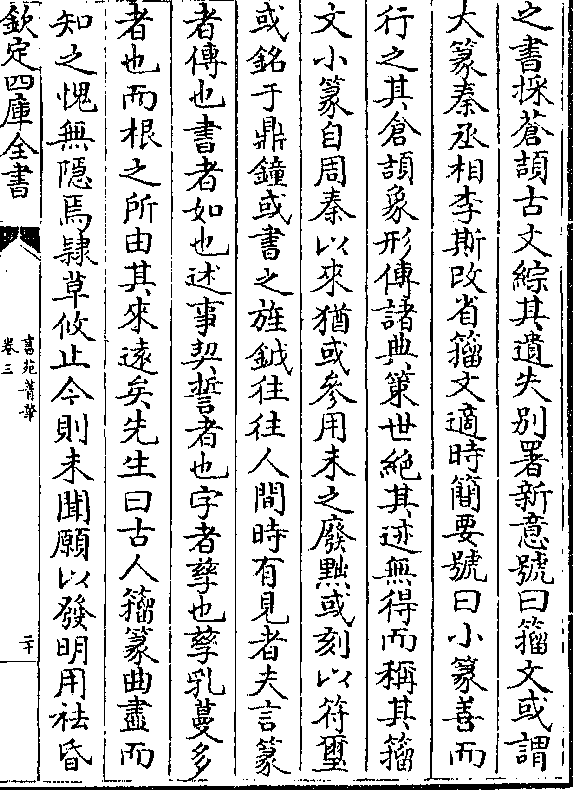 之書採蒼頡古文綜其遺失别署新意號曰籀文或謂
大篆秦丞相李斯改省籀文適時簡要號曰小篆善而
行之其倉頡象形傳諸典策世絶其迹無得而稱其籀
文小篆自周秦以來猶或參用未之廢黜或刻以符璽
或銘于鼎鐘或書之旌鉞往往人間時有見者夫言篆
者傳也書者如也述事契誓者也字者孳也孳乳蔓多
者也而根之所由其來遠矣先生曰古人籀篆曲盡而
知之愧無隱焉隷草攸止今則未聞願以發明用祛昏
欽定四庫全書
書苑菁華
卷三
二十